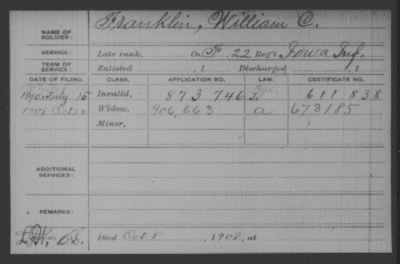 NAME OF SOLDIER: Franklin, William C.
SERVICE: Late rank, Co. F, 22 Reg't Iowa Inf.
TERM OF SERVICE: Enlisted , 1 Discharged , 1
DATE OF FILING. CLASS. APPLICATION NO. LAW. CERTIFICATE NO.
1890 July 15 Invalid, 873 746 611 838
1908 Oct Widow, 906,663 a 673185
Minor,
ADDITIONAL SERVICES:
REMARKS:
Died Oct 8, 1908, at